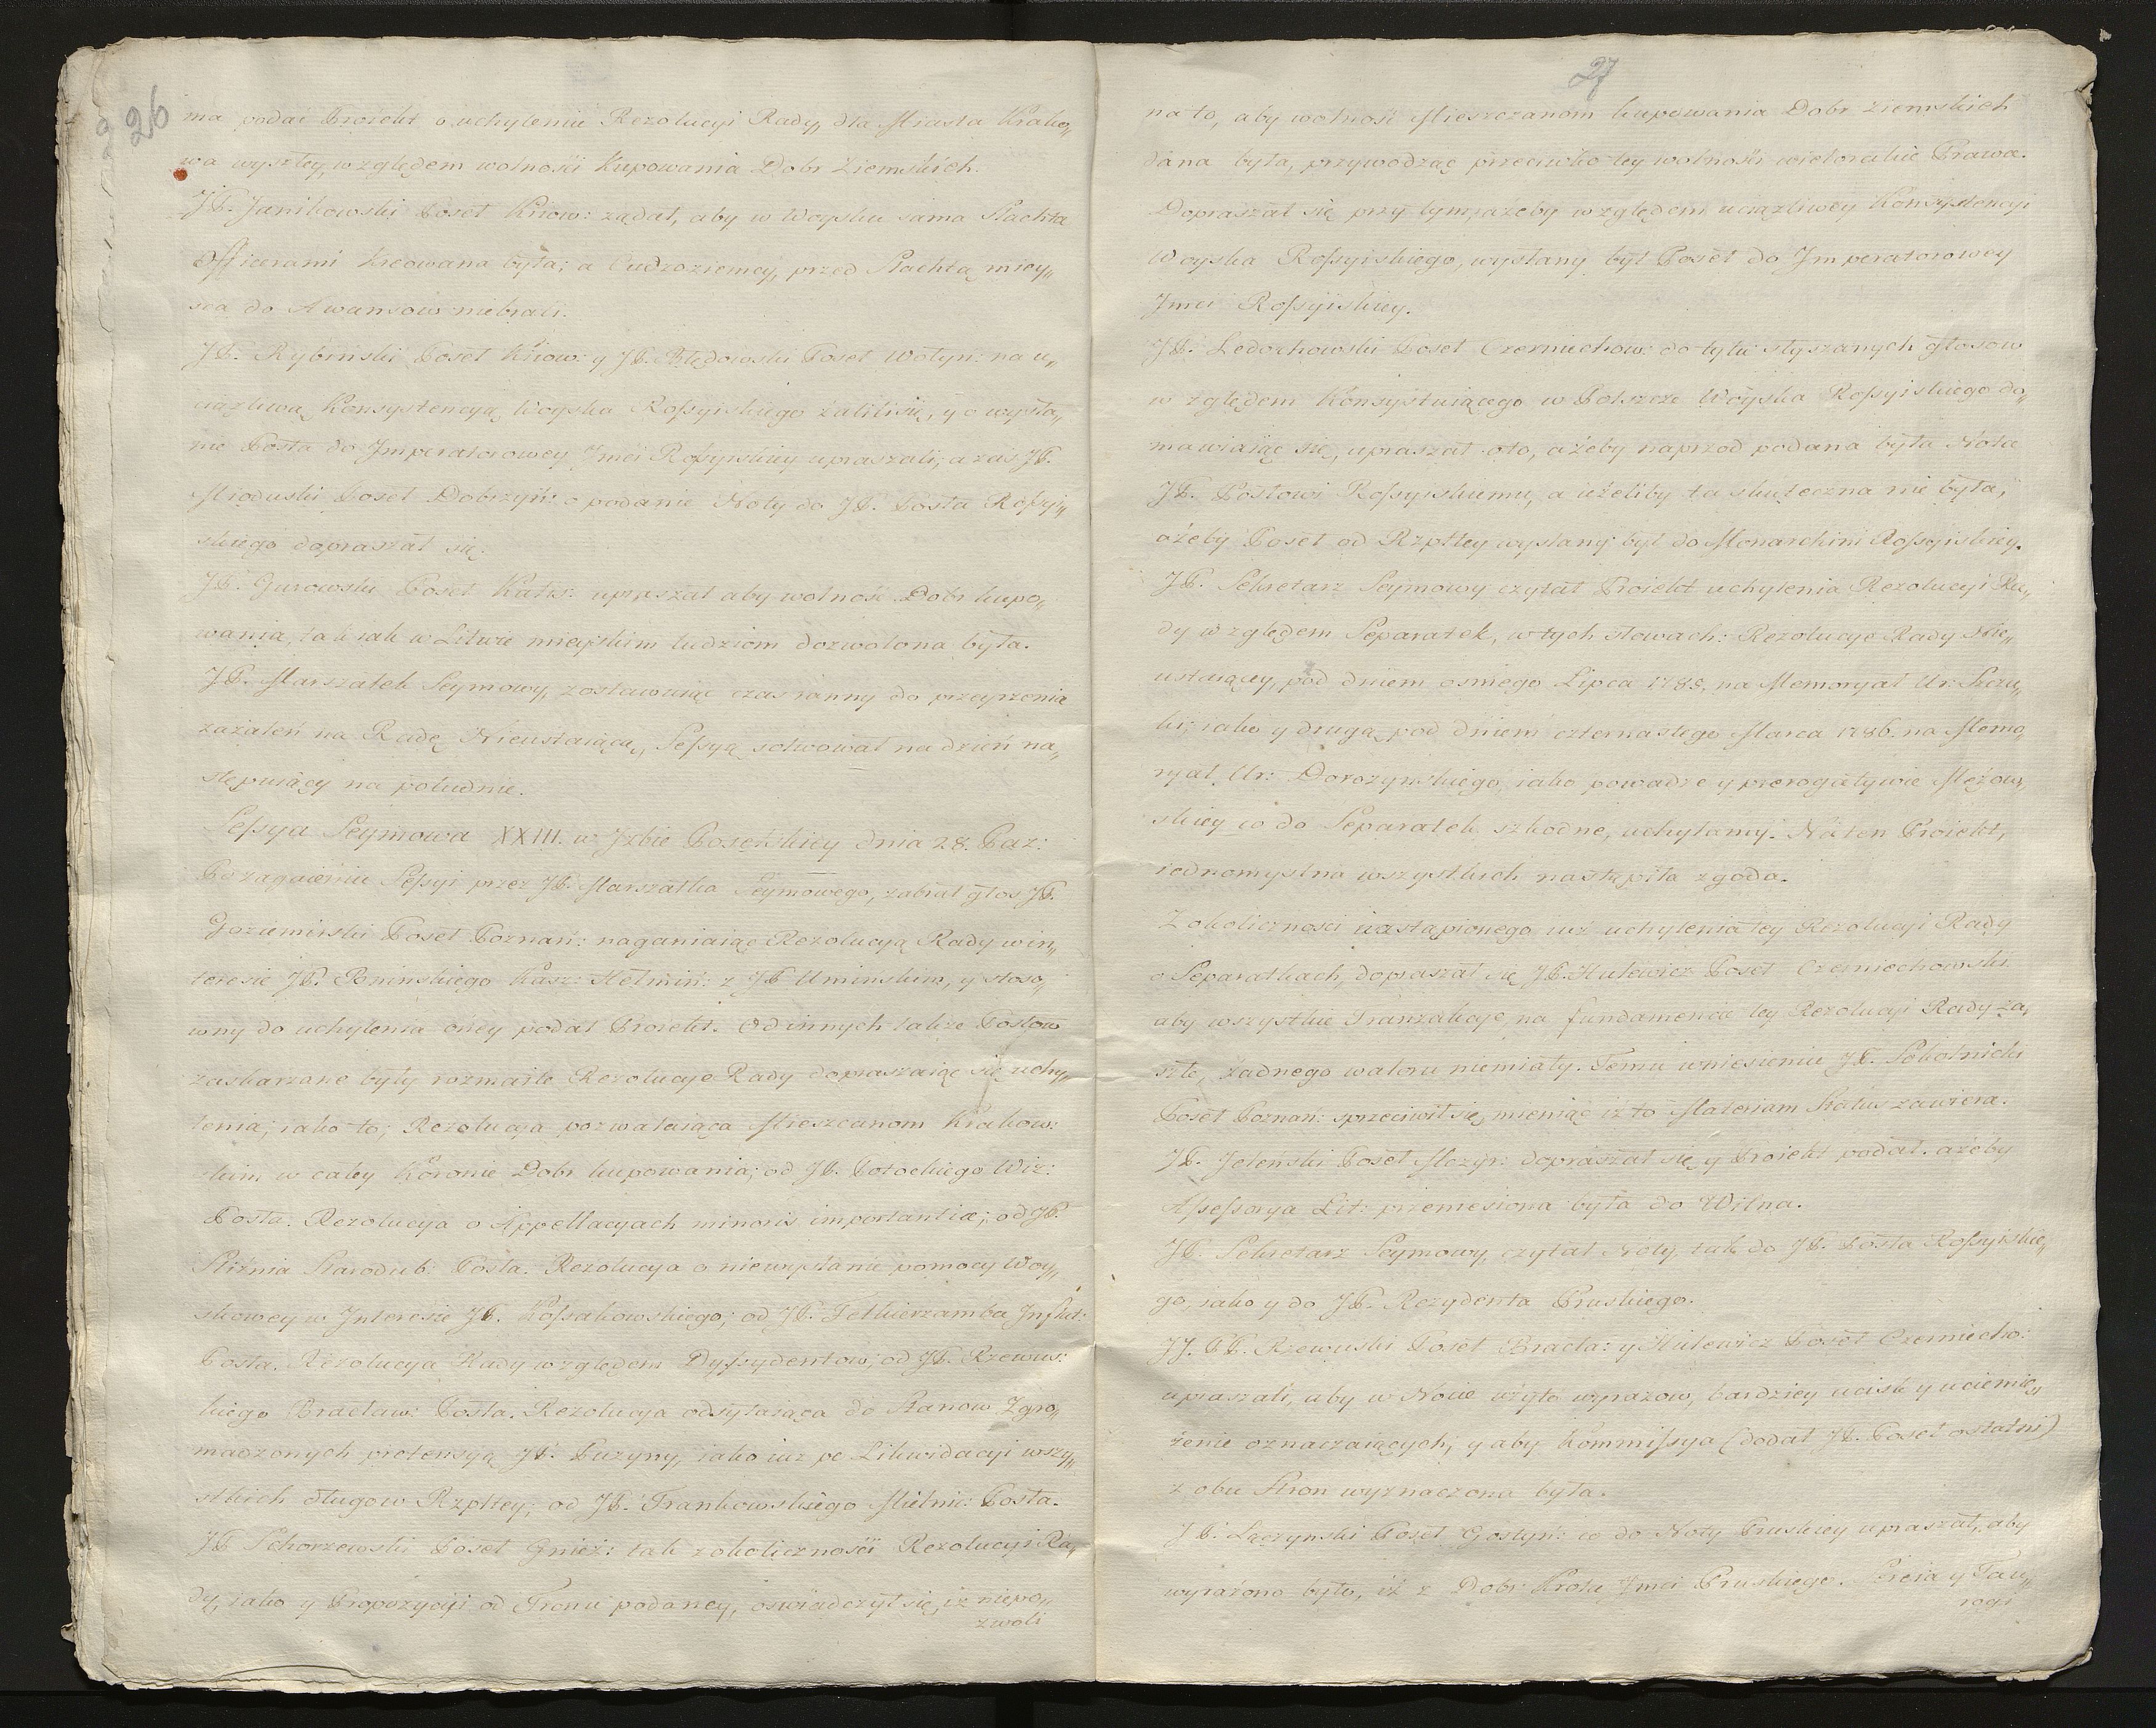 26
ma podać Proiekt o uchyleniu Rezolucyi Rady, dla Miasta Krako„
wa wyszłey, względem wolności kupowania Dobr Ziemskich.
JP. Janikowski Poseł Kiiow: żądał, aby w Woysku sama Slachta
Officerami kreowana była; a Cudzoziemcy, przed Slachtą miey„
sca do Awansow niebrali.
JP. Rybiński Poseł Kiiow: y JP. Błędowski Poseł Wołyn: na u„
ciążliwą Konsystencyą Woyska Rossyiskiego żalili się, y o wysła„
nie Posła do Imperatorowey Jmci Rossyiskiey upraszali; a zaś JP.
Mioduski Poseł Dobrzyń: o podanie Noty do JP. Posła Rossyi„
skiego dopraszał się.
JP. Gurowski Poseł Kalis: upraszał aby wolność Dobr kupo„
wania, tak iak w Litwie mieyskim ludziom dozwolona była.
JP. Marszałek Seymowy, zostawuiąc czas ranny do przeyrzenia
zażaleń na Radę Nieustaiącą, Sessyą solwował na dzień na„
stępuiący na południe.
Sessya Seymowa XXIII. w Izbie Poselskiey dnia 28. Paz:
Po zagaieniu Sessyi przez JP. Marszałka Seymowego, zabrał głos JP.
Goziemirski Poseł Poznań: naganiaiąc Rezolucyą Rady w in„
teresie JP. Ponińskiego Kasz: Hełmiń: z JP Umińskim, y stoso„
wny do uchylenia oney podał Proiekt. Od innych także Posłow
zaskarżane były rozmaite Rezolucye Rady dopraszaiąc się uchy„
lenia; iako to; Rezolucya pozwalaiąca Mieszczanom Krakow:
skim w całey Koronie Dobr kupowania; od JP. Potockiego Wiz:
Posła. Rezolucya o Appellacyach minoris importantiæ; od JP.
Starodub: Posła. Rezolucya o niewysłanie pomocy Woy„
skowey w Interesie JP. Kossakowskiego; od JP. Inflant:
Posła. Rezolucya Rady względem Dyssydentow; od JP. Rzewus:
kiego Bracław: Posła. Rezolucya odsyłaiąca do Stanow Zgro„
madzonych pretensyą JP. Puzyny, iako iuż po Likwidacyi wszy„
stkich długow Rzpltey; od JP. Frankowskiego Mielnic: Posła.
JP Skorzewski Poseł Gnież: tak z okoliczności Rezolucyi Ra„
dy, iako y Propozycyi od Tronu podaney, oświadczył się, iż niepo„
zwoli
27
na to, aby wolność Mieszczanom kupowania Dobr Ziemskich
dana była, przywodząc przeciwko tey wolności wielorakie Prawa.
Dopraszał się przy tym, ażeby względem uciążliwey Konsystencyi
Woyska Rossyiskiego, wysłany był Poseł do Imperatorowey
Jmci Rossyiskiey.
JP. Ledochowski Poseł Czerniechow: do tylu słyszanych głosow
względem Konsystuiącego w Polszcze Woyska Rossyiskiego do„
mawiaiąc się, upraszał oto, ażeby naprzod podana była Nota
JP. Posłowi Rossyiskiemu, a ieżeliby ta skuteczna nie była,
ażeby Poseł od Rzpltey wysłany był do Monarchini Rossyiskiey.
JP. Sekretarz Seymowy czytał Proiekt uchylenia Rezolucyi Ra„
dy względem Separatek, w tych słowach: Rezolucye Rady Nie„
ustaiącey, pod dniem osmego Lipca 1785, na Memoryał Ur:
iako y drugą pod dniem czternastego Marca 1786. na Memo„
ryał Ur: Dorozynskiego, iako powadze y prerogatywie Mężow„
skiey co do Separatek szkodne, uchylamy. Na ten Proiekt,
iednomyslna wszystkich nastąpiła zgoda.
Z okoliczności nastąpionego iuż uchylenia tey Rezolucyi Rady
o Separatkach, dopraszał się JP. Hulewicz Poseł Czerniechowski
aby wszystkie Tranzakcye na fundamencie tey Rezolucyi Rady za„
szłe, żadnego waloru niemiały. Temu wniesieniu JP. Sokolnicki
Poseł Poznań: sprzeciwił się, mieniąc iż to Materiam Status zawiera.
JP. Jeleński Poseł Mozyr: dopraszał się y Proiekt podał. ażeby
Assessorya Lit: przeniesiona była do Wilna.
JP. Sekretarz Seymowy, czytał Noty, tak do JP. Posła Rossyiskie„
go, iako y do JP. Rezydenta Pruskiego.
JJ. PP. Rzewuski Poseł Bracła: y Hulewicz Poseł Czerniecho:
upraszali, aby w Nocie użyto wyrazow, bardziey ucisk y uciemię„
żenie oznaczaiących; y aby Kommissya (dodał JP. Poseł ostatni)
z obu Stron wyznaczona była.
JP. Łączynski Poseł Gostyń: co do Noty Pruskiey upraszał, aby
wyrażono było, iż z Dobr Krola Jmci Pruskiego. Sereia y Tau„
rogi